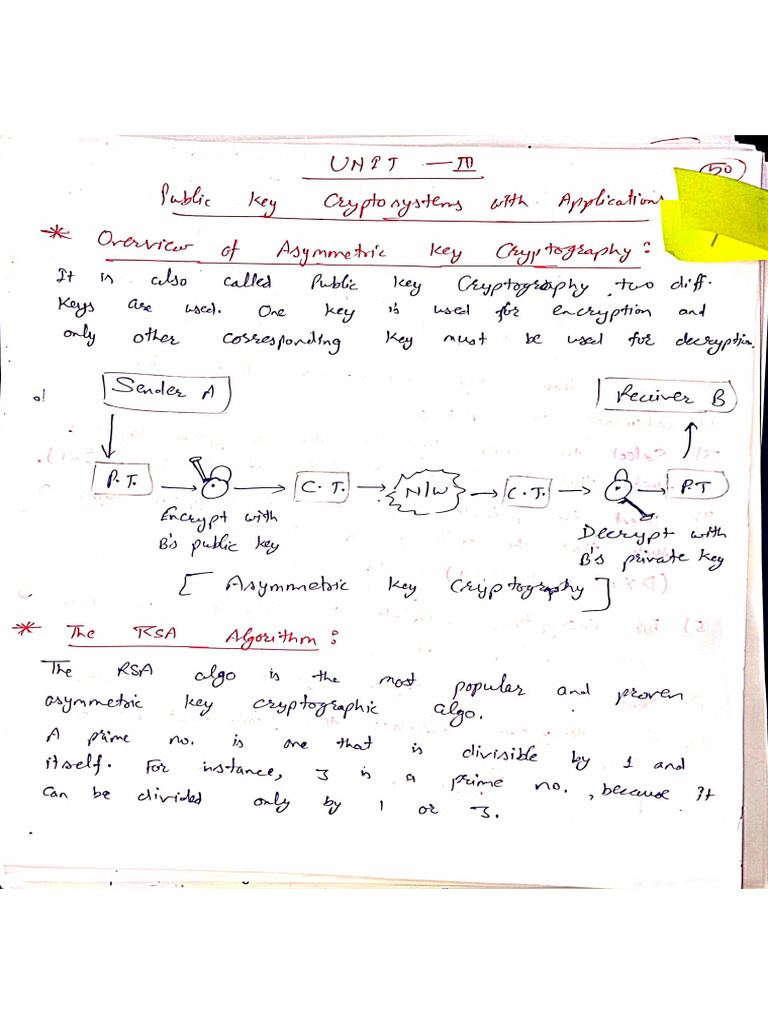 UNIT - III
50
Public Key Cryptosystems with Applications
* Overview of Asymmetric Key Cryptography :
It is also called Public Key Cryptography, two diff.
Keys are used. One key is used for encryption and
only other corresponding Key must be used for decryption.
Sender A
Reciver B
P.T.
C.T.
N/W
C.T.
P.T
Encrypt with
B's public key
Decrypt with
B's private key
[Asymmetric Key Cryptography]
* The RSA Algorithm :
The RSA algo is the most popular and proven
asymmetric key cryptographic algo.
A prime no. is one that is divisible by 1 and
itself. For instance, 3 is a prime no., because it
can be divided only by 1 or 3.